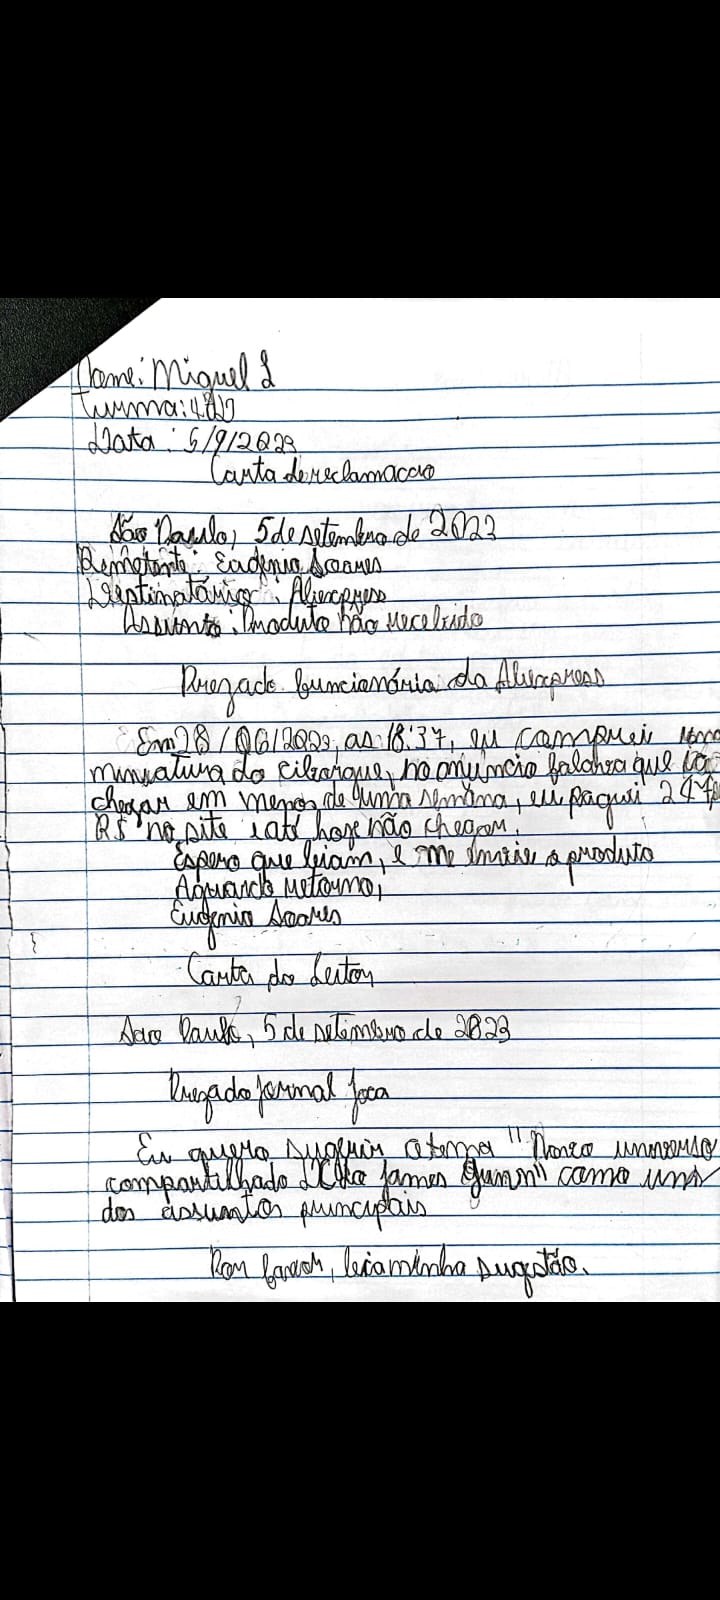 Nome: Miguel L
Turma: 4.
Data: 5/9/2023
Carta de reclamacao
São Paulo, 5 de setembro de 2023
Remetente: Eugenio Soares
Destinatário: Aliexpress
Assunto: Produto não recebido
Prezado funcionária da Aliexpress
Em 28/06/2023, as 18:37, eu comprei uma
miniatura do ciborgue, no anúncio falava que ia
chegar em menos de uma semana, eu paguei
R$ no site e até hoje não chegou.
Espero que leiam, e me envie o produto
Aguardo retorno,
Eugenio Soares
Carta do Leitor
Sao Paulo, 5 de setembro de 2023
Prezado jornal Joca
Eu quero sugerir o tema "Novo universo
compartilhado James Gunn" como um
dos assuntos principais
Por favor, leia minha sugestão.